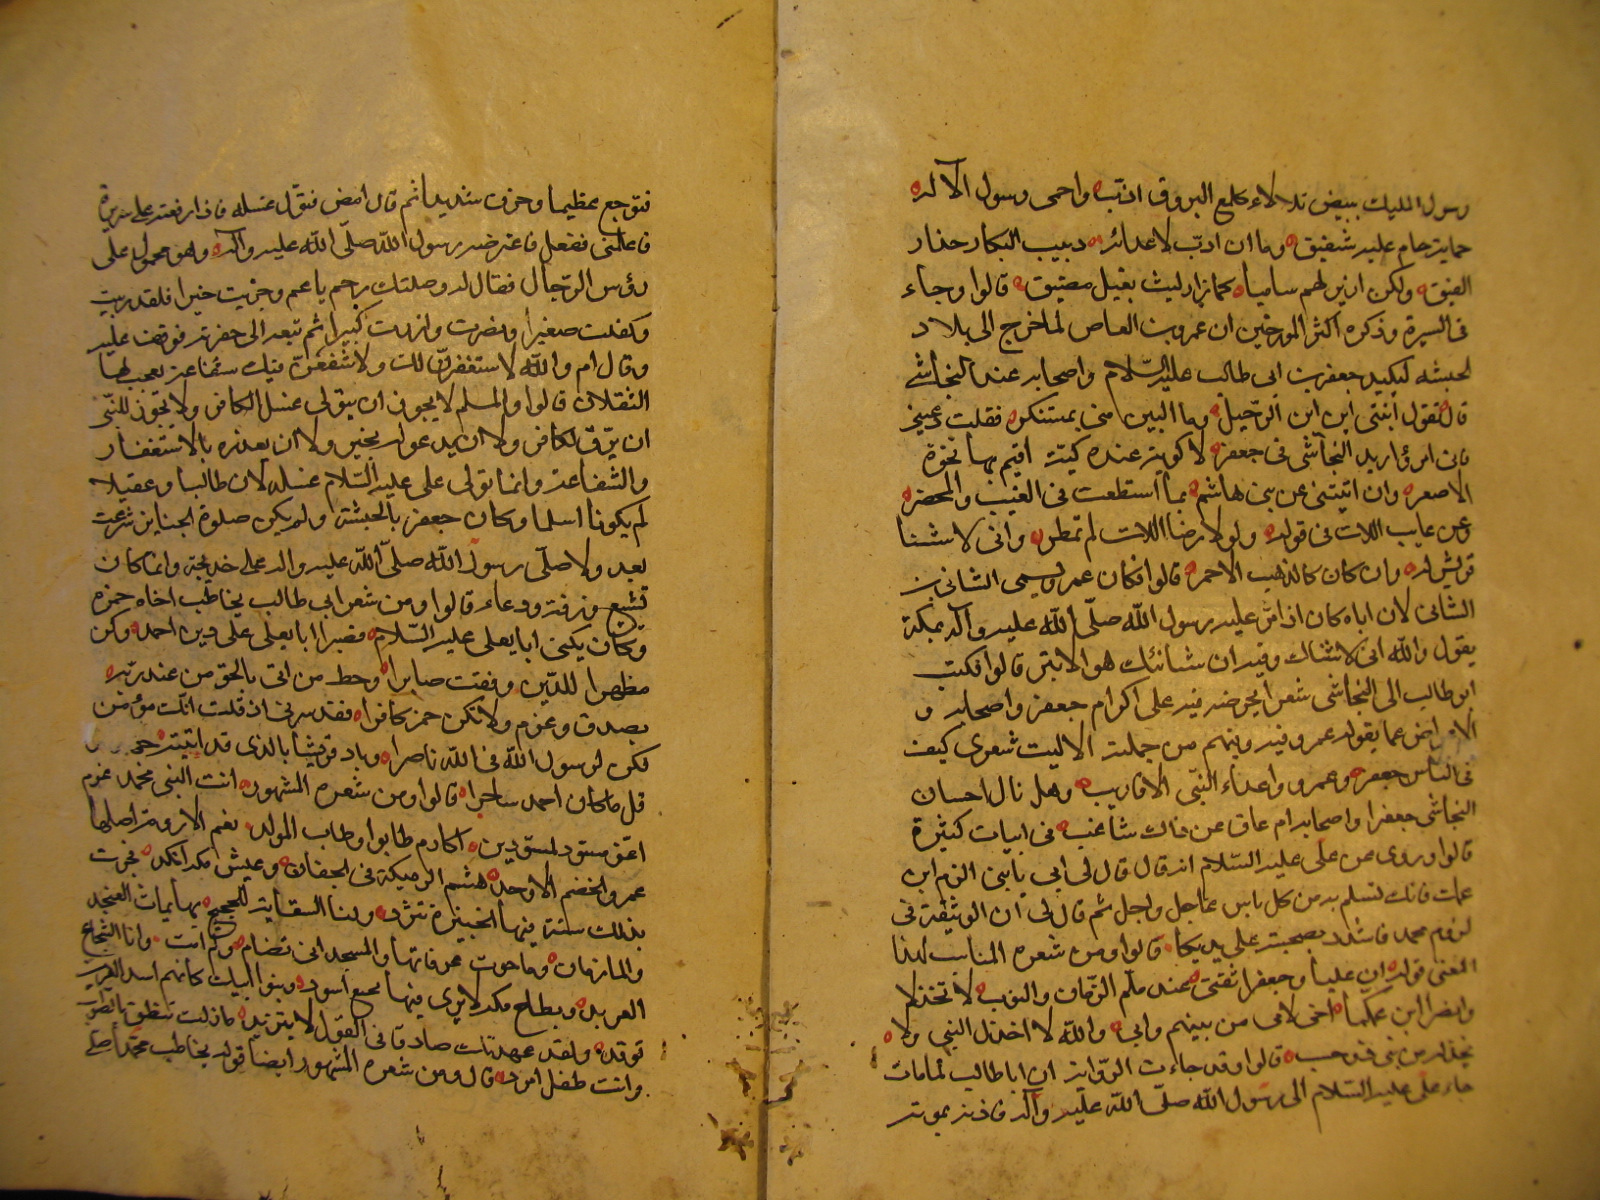 رسول المليك ببيض تلالاء كلمع البروق اذبّ واحمى رسول الاله
حماية حام عليه شفيق وما ان ادبّ لاعدائه دبيب البكار حذار
الفنيق ولكن ازير لهم ساميا كما زار ليث بغيل مضيق قالوا وجاء
فى السيرة وذكره اكثر المورخين ان عمرو بن العاص لما خرج الى بلاد
الحبشه ليكيد جعفر بن ابى طالب عليه السّلام واصحابه عند النجاشى
قال تقول ابنتى اين اين الرّحيل وما البين منى بمستنكر فقلت دعينى
فانى امرؤ اريد النجاشى فى جعفر لاكويه عنده كيّة اقيم بها نخوة
الاصعر وان انثنى عن بنى هاشم بما اسطعت فى الغيب والمحضر
وعن عايب اللات فى قوله ولولا رضا اللات لم تمطر وانى لاشنا
قريش له وان كان كالذهب الاحمر قالوا فكان عمرو يسمى الشانى بن
الشانى لان اباه كان اذا مرّ عليه رسول الله صلّى الله عليه وآله بمكة
يقول والله انى لاشناك وفيه ان شانئك هو الابتر قالوا فكتب
ابو طالب الى النجاشى شعرا يحرضه فيه على اكرام جعفر واصحابه و
الاعراض عما يقوله عمرو فيه وفيهم من جملته الا ليت شعرى كيف
فى الناس جعفر وعمرو واعداء النبّى الاقارب وهل نال احسان
النجاشى جعفرا واصحابه ام عاق عن ذاك شاغب فى ابيات كثيرة
قالوا وروى عن علّى عليه السّلام انه قال قال لى ابى يا بنىّ الزم ابن
عمك فانك تسلم به من كل باس عاجل واجل ثم قال لى ان الوثيقة فى
لزوم محمد فاشدد بصحبته على يديكا قالوا ومن شعره المناسب لهذا
المعنى قوله ان عليا وجعفرا ثقتى عند ملم الزمان والنوب لا تخذلا
وانصرا ابن عمكما اخى لامى من بينهم وابى والله لا اخذل النبى ولا
يخذله من بنى ذو حسب قالوا وقد جاءت الرّواية ان ابا طالب لما مات
جاء على عليه السّلام الى رسول الله صلّى الله عليه وآله فاذنه بموته
فتوجع عظيما وحزن شديدا ثم قال امض فتوّل غسله فاذا رفعته على سريره
فاعلمنى ففعل فاعترضه رسول الله صلّى الله عليه وآله وهو محمول على
رؤس الرّجال فقال له وصلتك رحم يا عم وجزيت خيرا فلقد ربيت
وكفلت صغيرا ونصرت وازرت كبيرا ثم تبعه الى حفرته فوقف عليه
وقال ام والله لاستغفرنّ لك ولاشفعن فيك شفاعة يعجب لها
الثقلان قالوا والمسلم لا يجوز ان يتولى غسل الكافر ولا يجوز للنّبى
ان يرّق لكافر ولا ان يدعو له بخير ولا ان يعده بالاستغفار
والشفاعة وانما تولى على عليه السّلام غسله لان طالبا وعقيلا
لم يكونا اسلما وكان جعفر بالحبشة ولم يكن صلوة الجنايز شرعت
بعد ولا صلّى رسول الله صلّى الله عليه واله على خديجة وانما كان
تشيع ورقة ودعاء قالوا ومن شعر ابى طالب يخاطب اخاه حمزه
وكان يكنى ابا يعلى عليه السّلام فصبرا ابا يعلى على دين احمد وكن
مظهرا للدّين وفقت صابرا وحط من اتى بالحق من عند ربّه
بصدق وعزم ولا تكن حمز كافرا فقد سرنى اذ قلت انك مؤمن
فكن لرسول الله فى الله ناصرا وباد قريشا بالذى قد اتيته
قل ما كان احمد ساحرا قالوا ومن شعره المشهور انت النبى محمد قرم
اعزّ مسوّد لمسوّدين اكارم طابوا وطاب المولد نعم الارومة اصلها
عمرو الخضم الاوحد هشم الربيكة فى الجفان وعيش مكة انكد فجرت
بذلك سنّة فيها الخبيزة تثرد ولنا السقاية للحجيج بها يماث العنجد
والمازمان وما حوت عرفاتها والمسجد انى تضام ولم امت وانا الشجاع
العربد وبطاح مكة لا يرى فيها نجيع اسود وبنو ابيك كانهم اسد العرين
توقد ولقد عهدتك صادقا فى القول لا يتزيد ما زلت تنطق بالصواب
وانت طفل امرد قال ومن شعره المشهور ايضا قوله يخاطب محمّدا صلى